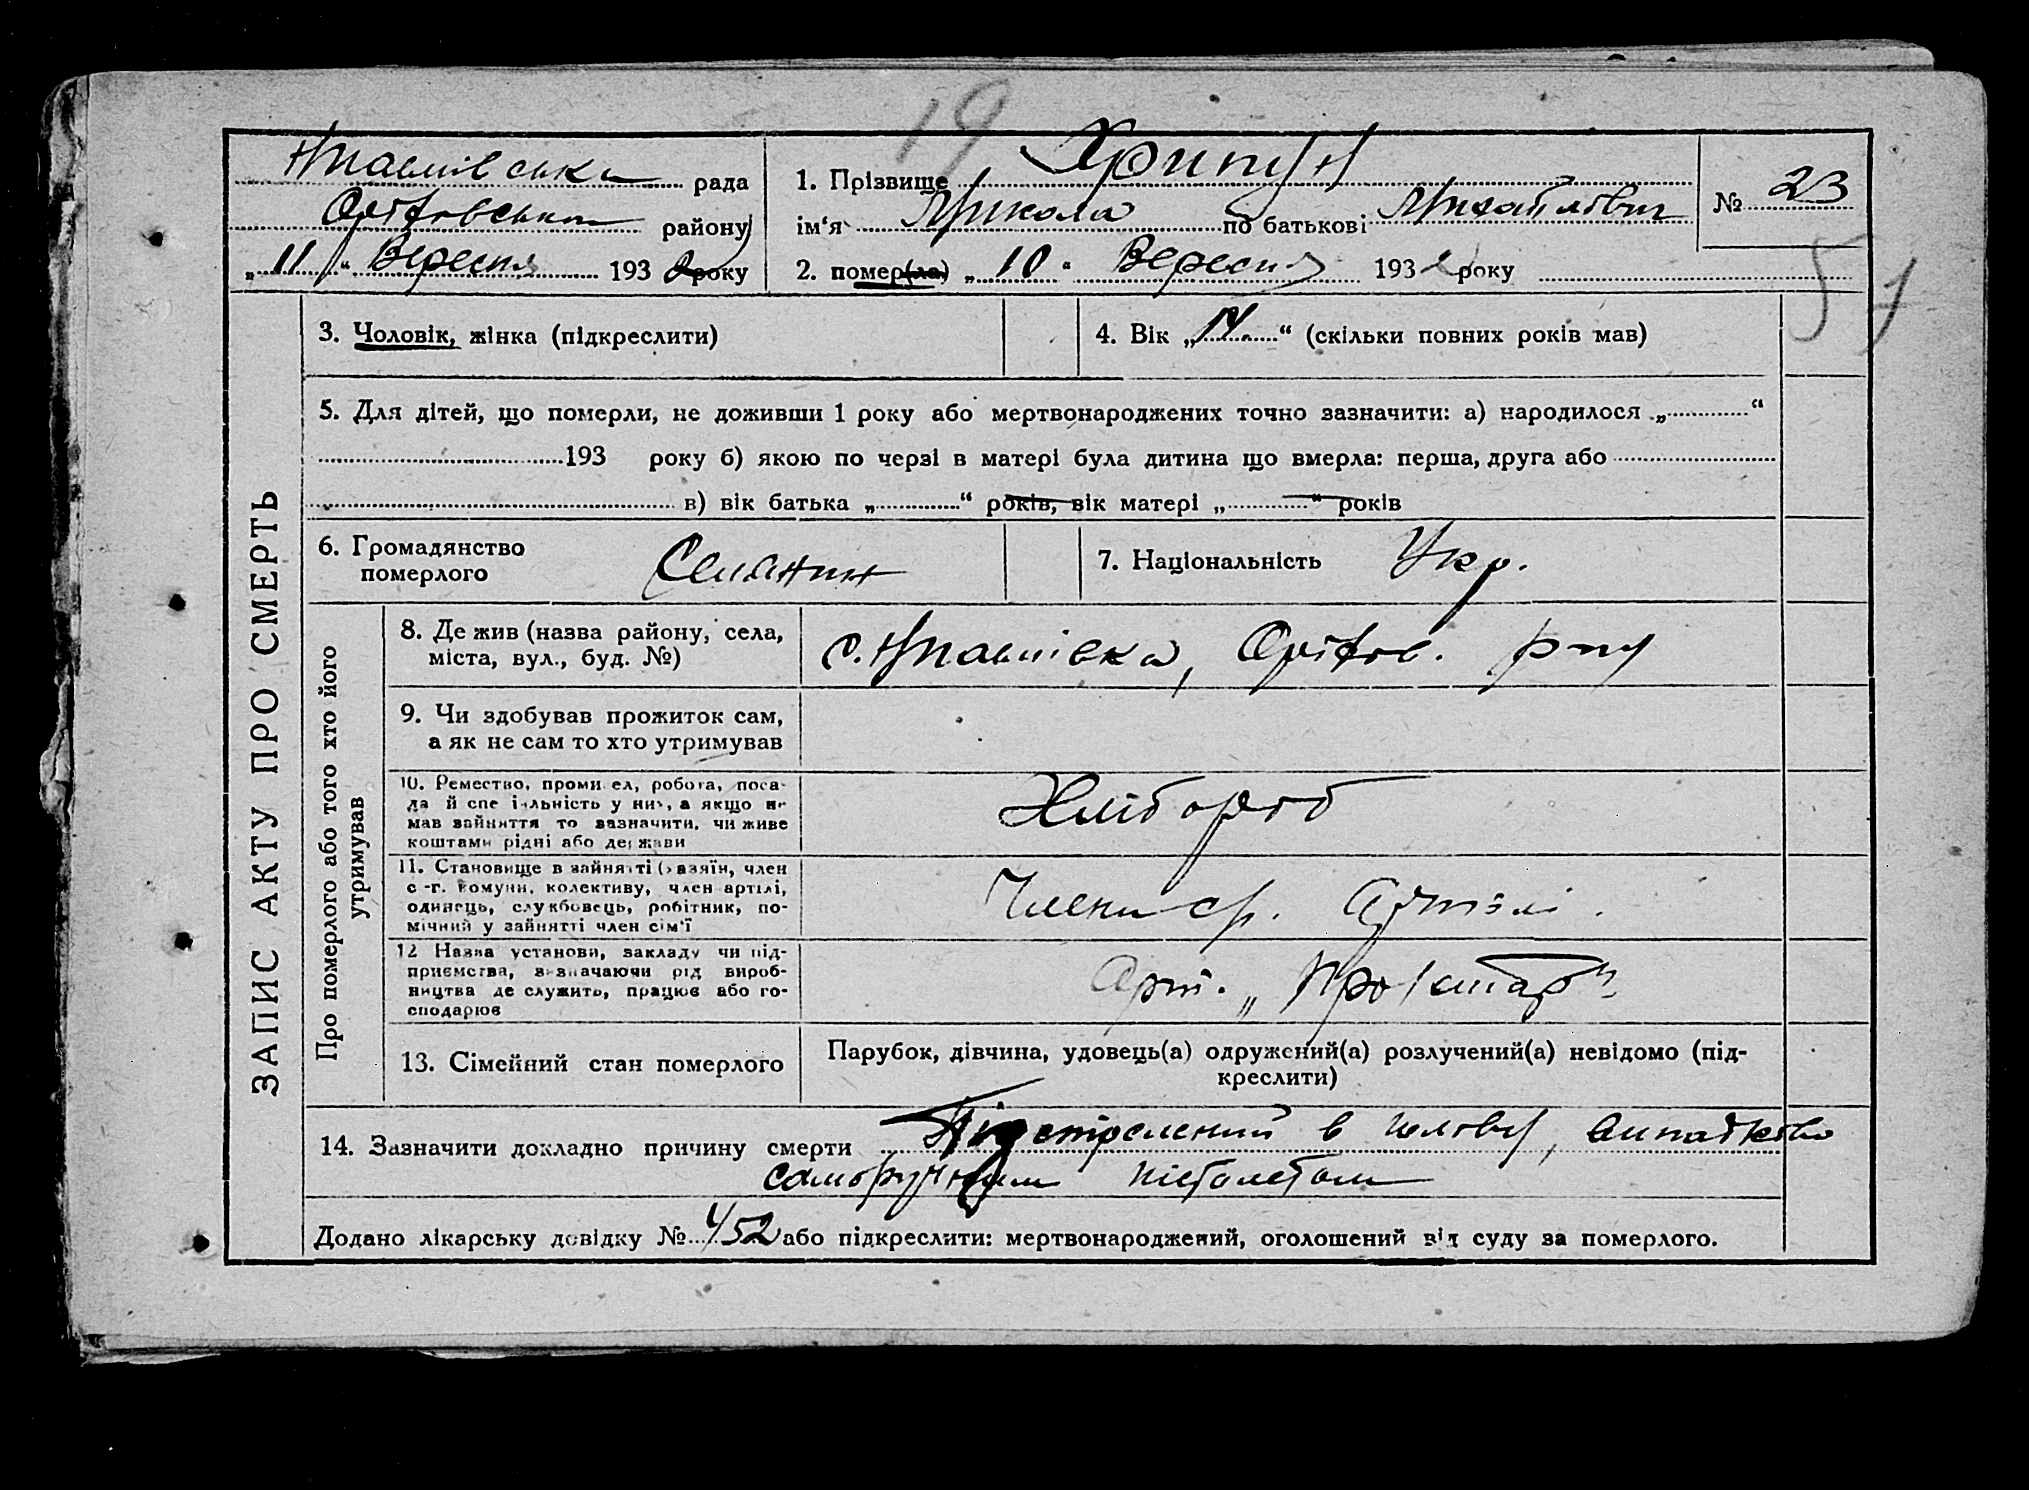 19
Юпавлівська рада
Оріхівського району
„11“ Вересня 1932 року
1. Прізвище Хрипун
ім‘я Микола по батькові Михайлович
№ 23
2. помер(ла) „10“ Вересня 1932 року
51
3. Чоловік, жінка (підкреслити)
4. Вік „14“ (скільки повних років мав)
5. Для дітей, що померли, не доживши 1 року або мертвонароджених точно зазначити: а) народилося „ “
193 року б) якою по черзі в матері була дитина що вмерла: перша, друга або
в) вік батька „ “ років, вік матері „ “ років
6. Громадянство
померлого
Селянин
7. Національність Укр.
ЗАПИС АКТУ ПРО СМЕРТЬ
Про померлого або того хто його
утримував
8. Де жив (назва району, села,
міста, вул., буд. №)
9. Чи здобував прожиток сам,
а як не сам то хто утримував
10. Ремество, промисел, робота, поса-
да й спеціяльність у них, а якщо не
мав зайняття то зазначити, чи живе
коштами рідні або держави
Хлібороб
11. Становище в зайнятті (хазяїн, член
с.-г. комуни, колективу, член артілі,
одинець, службовець, робітник, по-
мічний у зайнятті член сім‘ї
Члени с/г. Артілі.
12 Назва установи, закладу чи під-
приємства, визначаючи рід вироб-
ництва де служить, працює або го-
сподарює
Арт. „Пролетар“
13. Сімейний стан померлого
Парубок, дівчина, удовець(а) одружений(а) розлучений(а) невідомо (під-
креслити)
14. Зазначити докладно причину смерти Підстрелений в голову, випадково
саморучним пістолетом
Додано лікарську довідку № 452 або підкреслити: мертвонароджений, оголошений від суду за померлого.